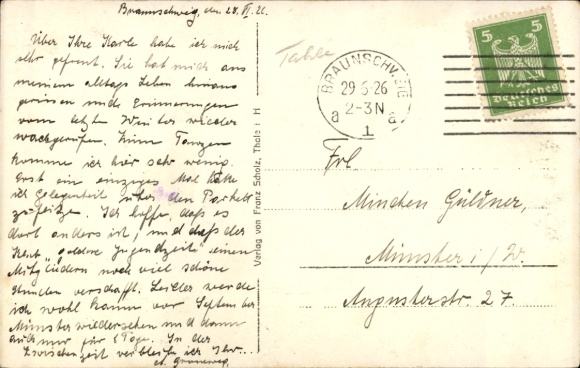 Braunschweig, den 28. VI. 26.
Über Ihre Karte habe ich mich
sehr gefreut. Sie hat mich aus
meinem alltags Leben heraus
gerissen und Erinnerungen
vom letzten Winter wieder
wachgerufen. Zum Tanzen
komme ich hier sehr wenig.
Erst ein einziges Mal hatte
ich Gelegenheit über den Parkett
zu Ich hoffe, daß es
dort anders ist, und daß der
Club "goldene Jugendzeit" seinen
Mitgliedern noch viel schöne
Stunden verschafft. Leider werde
ich wohl kaum vor September
Münster wiedersehen und dann
auch nur für Tage. In der
Zwischenzeit verbleibe ich Ihr...
Verlag von Franz Scholz, Thale i. H
Thale
BRAUNSCHWEIG
29.6.26
2-3N
a a
1
5 5
Deutsches
Reich
Frl
Minchen Güldner,
Münster i/W.
Augusterstr. 27.